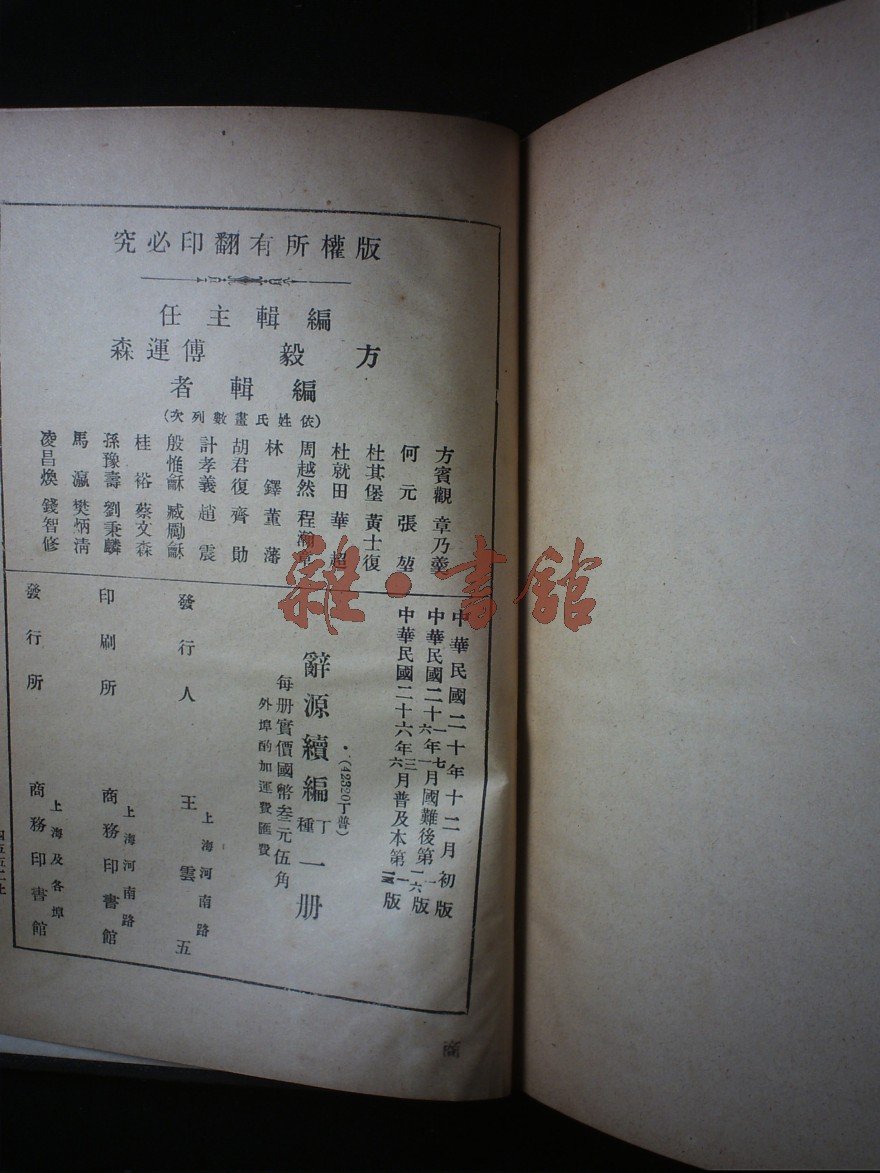 版權所有翻印必究
編輯主任
方毅 傅運森
編輯者
(依姓氏畫數列次)
方賓觀 章乃羹
何元 張堃
杜其堡 黃士復
杜就田 華超
周越然 程瀚章
林鐸 董藩
胡君復 齊勛
計孝義 趙震
殷惟龢 臧勵龢
桂裕 蔡文森
孫豫壽 劉秉麟
馬瀛 樊炳清
凌昌煥 錢智修
中華民國二十年十二月初版
中華民國二十一年七月國難後第一版
六 一 六
中華民國二十六年三月普及本第一版
六
(42320丁普)
辭源續編 丁種 一册
每册實價國幣叁元伍角
外埠酌加運費匯費
上海河南路
發行人 王雲五
上海河南路
印刷所 商務印書館
上海及各埠
發行所 商務印書館
商
雜·書館